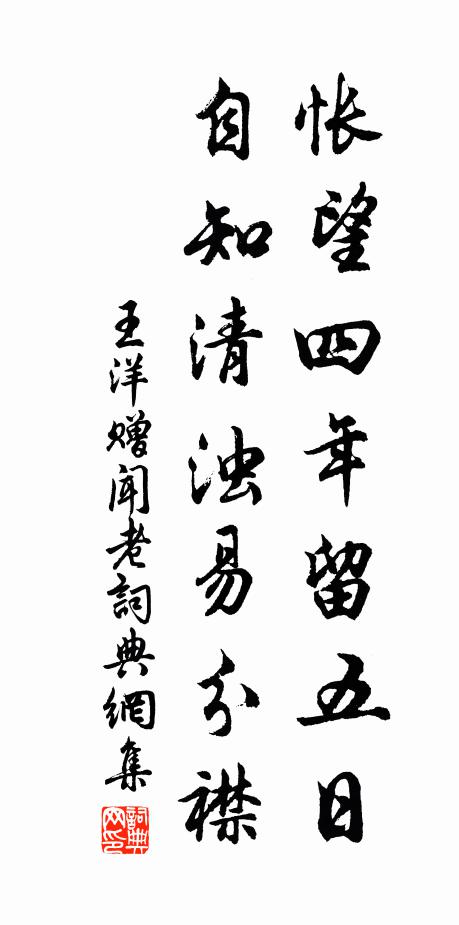 怅望四年留五日
自知清浊易分襟
王洋赠闻老詞典網集
詞典
网印